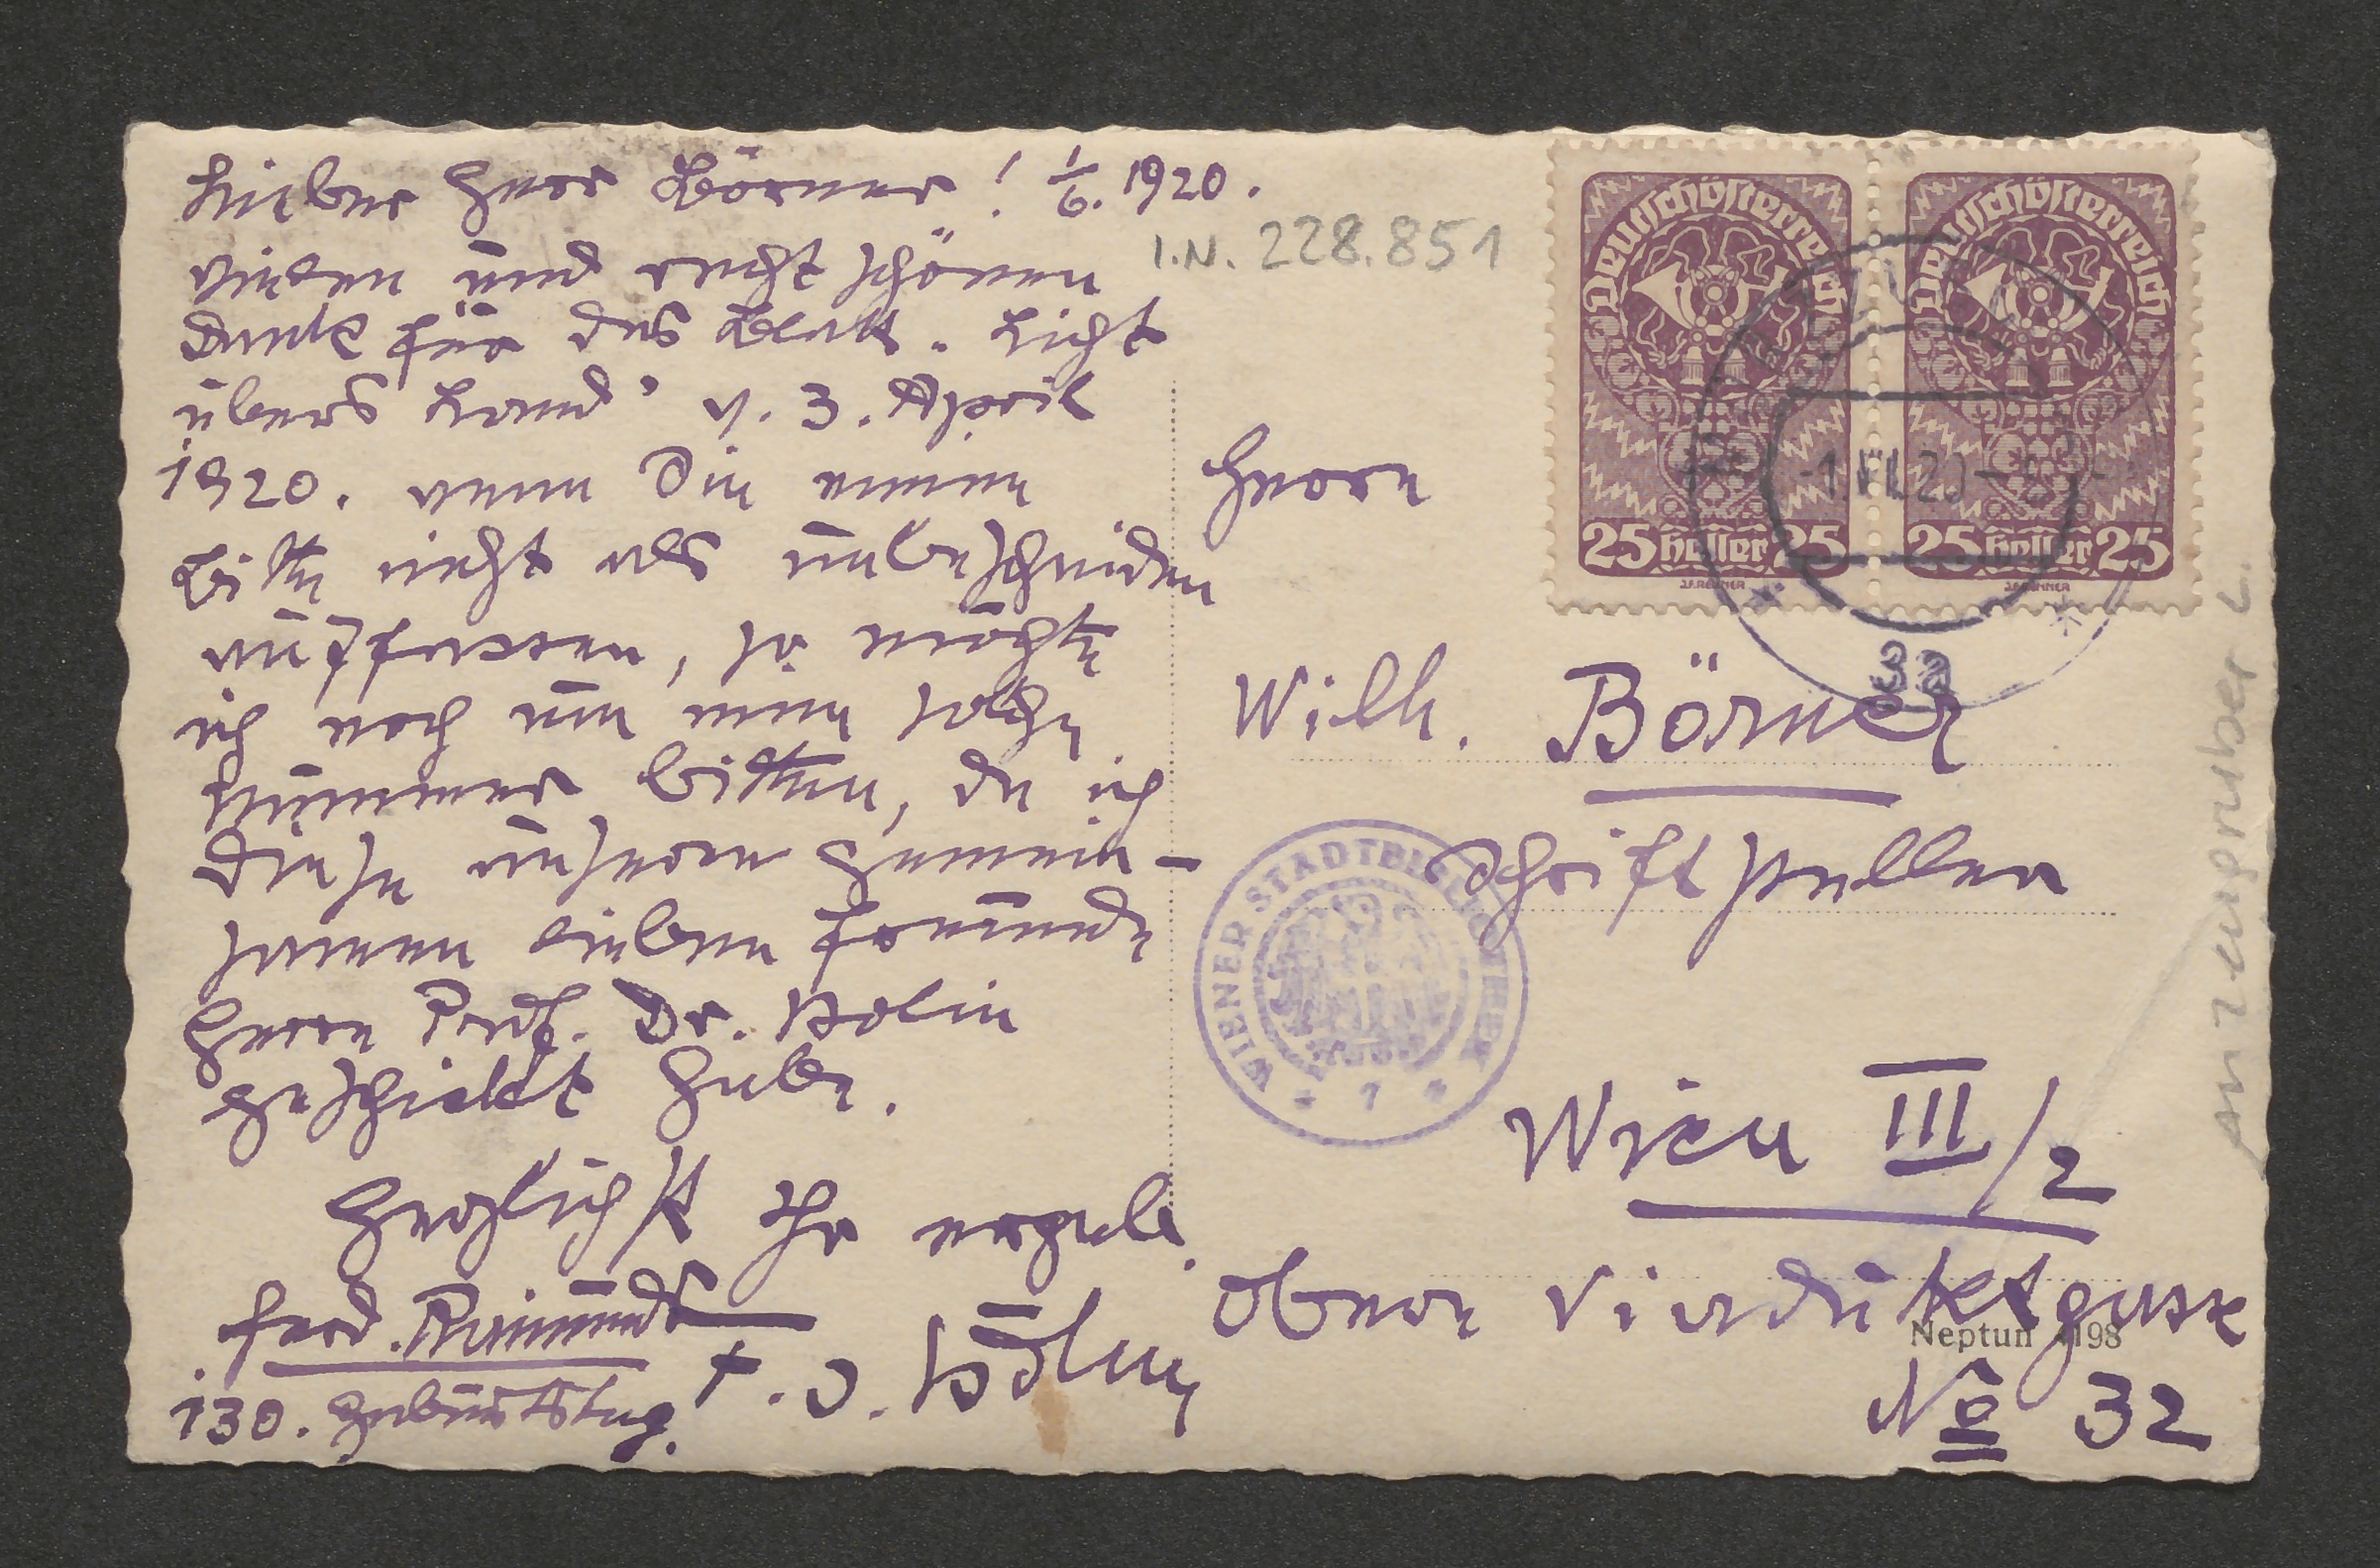 Lieber Herr Börner! 1/6. 1920.
vielen und recht schönen
Dank für das Blatt „Licht
übers Land" v. 3. April
1920. wenn Sie meine
Bitte nicht als unbescheiden
auffassen, so möchte
ich noch um eine solche
Nummer bitten, da ich
diese unserem gemein-
samen lieben Freunde
Herrn Prof. Dr.
geschickt habe.
Herzlichst Ihr ergeb.
Ferd. Raimunds
130. Geburtstag.
I.N. 228.851
Deutschösterreich
25 heller 25
Deutschösterreich
25 heller 25
32
Herrn
Wilh. Börner
Schriftsteller
WIENER STADTBIBLIOTHEK
* 1 *
Wien III/2
Obere Viaduktgasse
Neptun
No 32
Anzengruber L.